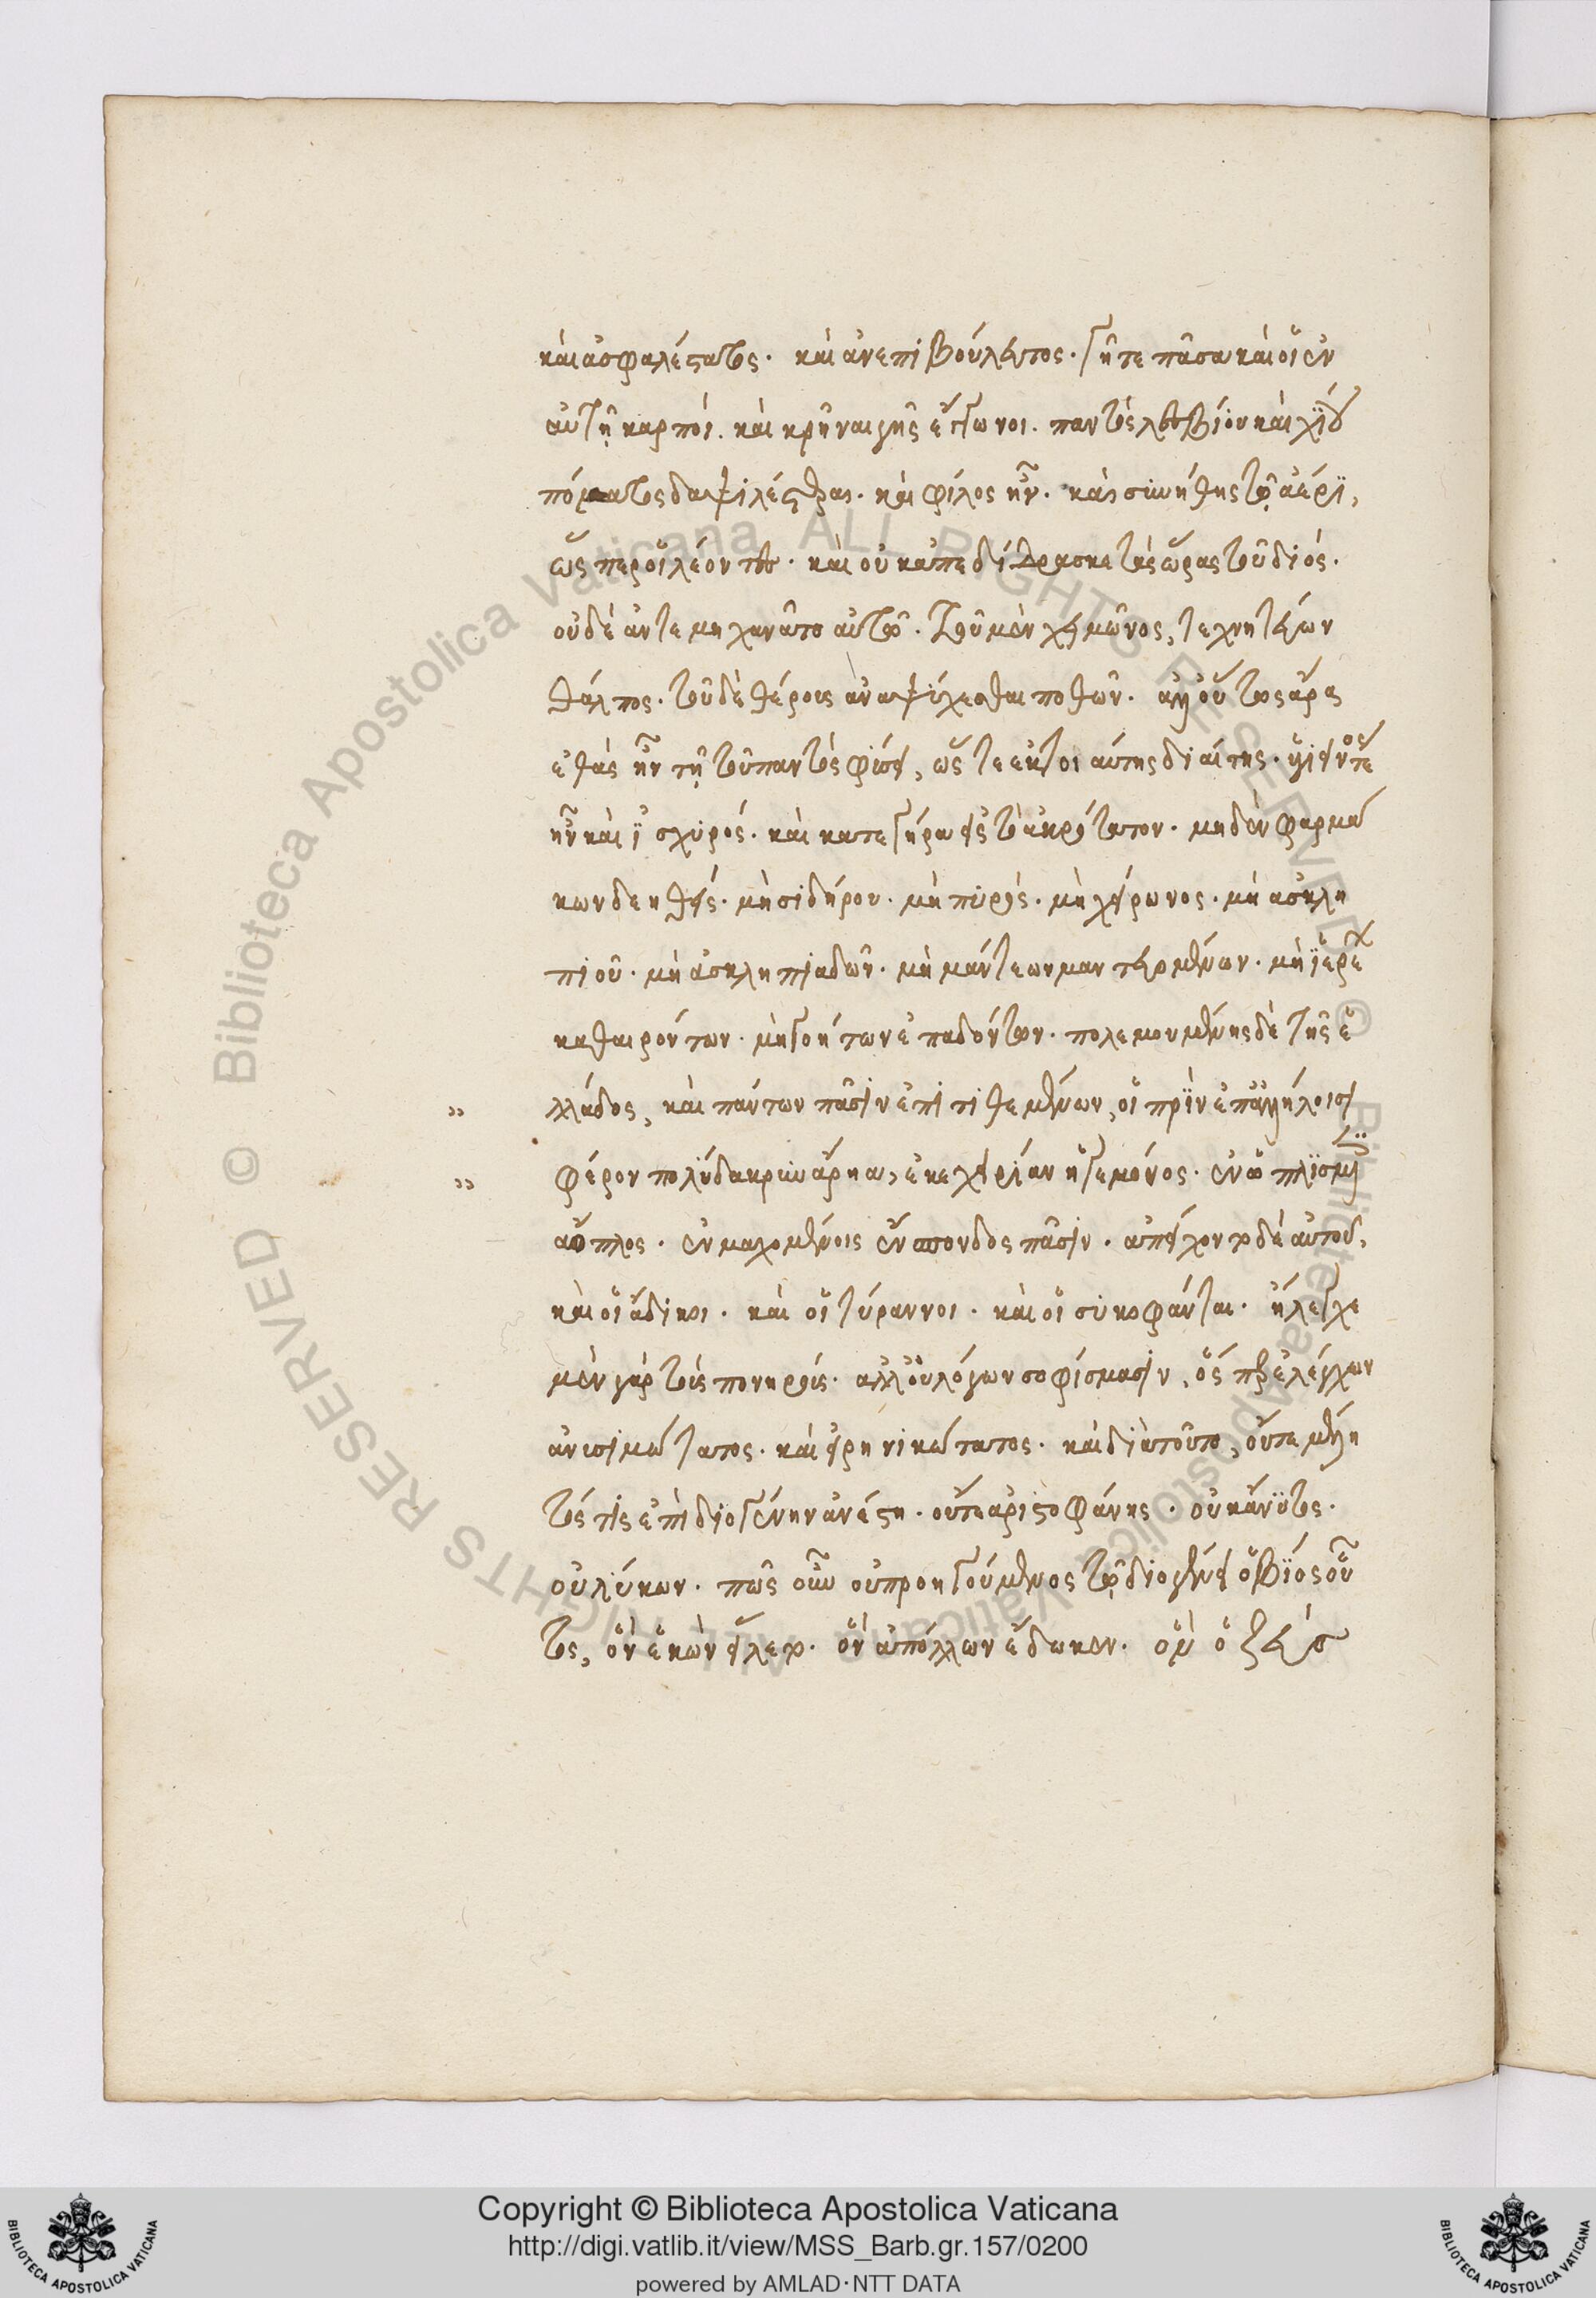 καὶ ἀσφαλέστατος. καὶ ἀνεπιβούλευτος. γῆ τε πᾶσα καὶ οἱ ἐν
αὐτῇ καρποί. καὶ κρῆναι γῆς ἔγγονοι. παντὸς λεσβίου καὶ χίου
πόματος δαψιλέστεραι. καὶ φίλος ἦν. καὶ συνήθης τῷ ἀέρϊ,
ὥσπερ οἱ λέοντες. καὶ οὐκ ἀπεδίδρασκε τὰς ὥρας τοῦ διός.
οὐδὲ ἀντεμηχανᾶτο αὐτῷ. τοῦ μὲν χειμῶνος, τεχνιτεύων
θάλπος. τοῦ δὲ θέρους ἀναψύχεσθαι ποθῶν. ἀλλ' οὕτως ἄρα
ἐθὰς ἦν τῇ τοῦ παντὸς φύσει, ὥστε ἐκ τοιαύτης διαίτης. ὑγιεινός τε
ἦν καὶ ἰσχυρός. καὶ κατεγήρα εἰς τὸ ἀκρότατον. μηδὲν φαρμά
κων δεηθείς. μὴ σιδήρου. μὴ πυρός. μὴ χείρωνος. μὴ ἀσκλη
πιοῦ. μὴ ἀσκληπιαδῶν. μὴ μάντεων μαντευομένων. μὴ ἱερέων
καθαιρόντων. μὴ γοήτων ἐπαδόντων. πολεμουμένης δὲ τῆς ἑ
λλάδος, καὶ πάντων πᾶσιν ἐπιτιθεμένων, οἳ πρὶν ἐπ' ἀλλήλοισι
φέρον πολύδακρυν ἄρηα, ἐκεχειρίαν ἦγε μόνος. ἐν ὡπλισμένοις
ἄοπλος. ἐν μαχομένοις ἔνσπονδος πᾶσιν. ἀπείχοντο δὲ αὐτοῦ,
καὶ οἱ ἄδικοι. καὶ οἱ τύραννοι. καὶ οἱ συκοφάνται. ἤλεγχε
μὲν γὰρ τοὺς πονηρούς. ἀλλ' οὐ λόγων σοφίσμασιν, ὃς τῶν ἐλέγχων
ἀνυσιμώτατος. καὶ εἰρηνικώτατος. καὶ διὰ τοῦτο, οὔτε μέλη
τός τις ἐπὶ διογένην ἀνέστη. οὔτε ἀριστοφάνης. οὐκ ἄνυτος.
οὐ λύκων. πῶς οὖν οὐ προηγούμενος τῷ διογένει ὁ βίος οὗ
τος, ὃν ἑκὼν εἵλετο. ὃν ἀπόλλων ἔδωκεν. ὃν ὁ ζεύσ